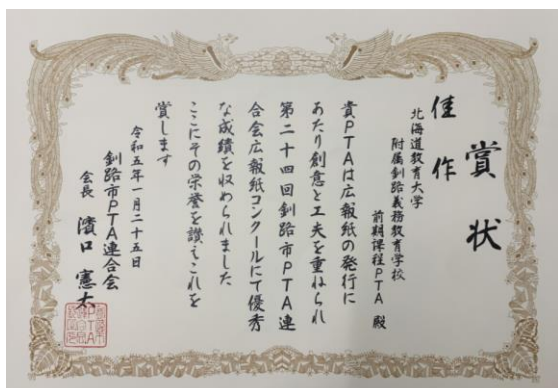 賞状
佳作
北海道教育大学
附属釧路義務教育学校
前期課程PTA 殿
貴PTAは広報紙の発行に
あたり創意と工夫を重ねられ
第二十四回釧路市PTA連
合会広報紙コンクールにて優秀
な成績を収められました
ここにその栄誉を讃えこれを
賞します
令和五年一月二十五日
釧路市PTA連合会
会長 濱口 憲太